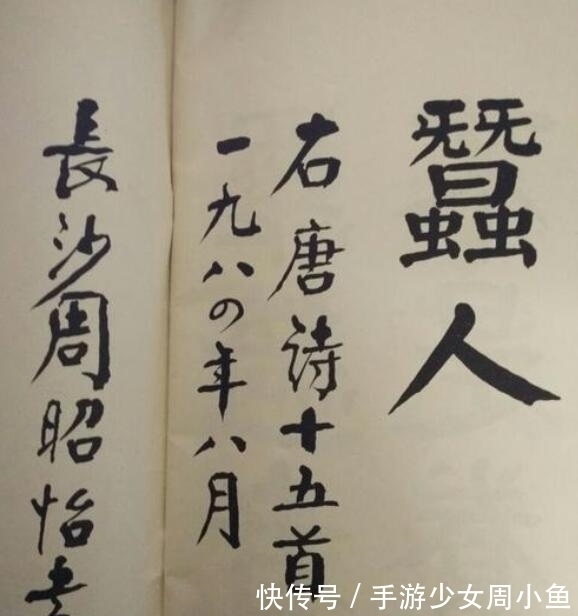 蠶人
右唐诗十五首
一九八四年八月
長沙周昭怡书
快传号/手游少女周小鱼